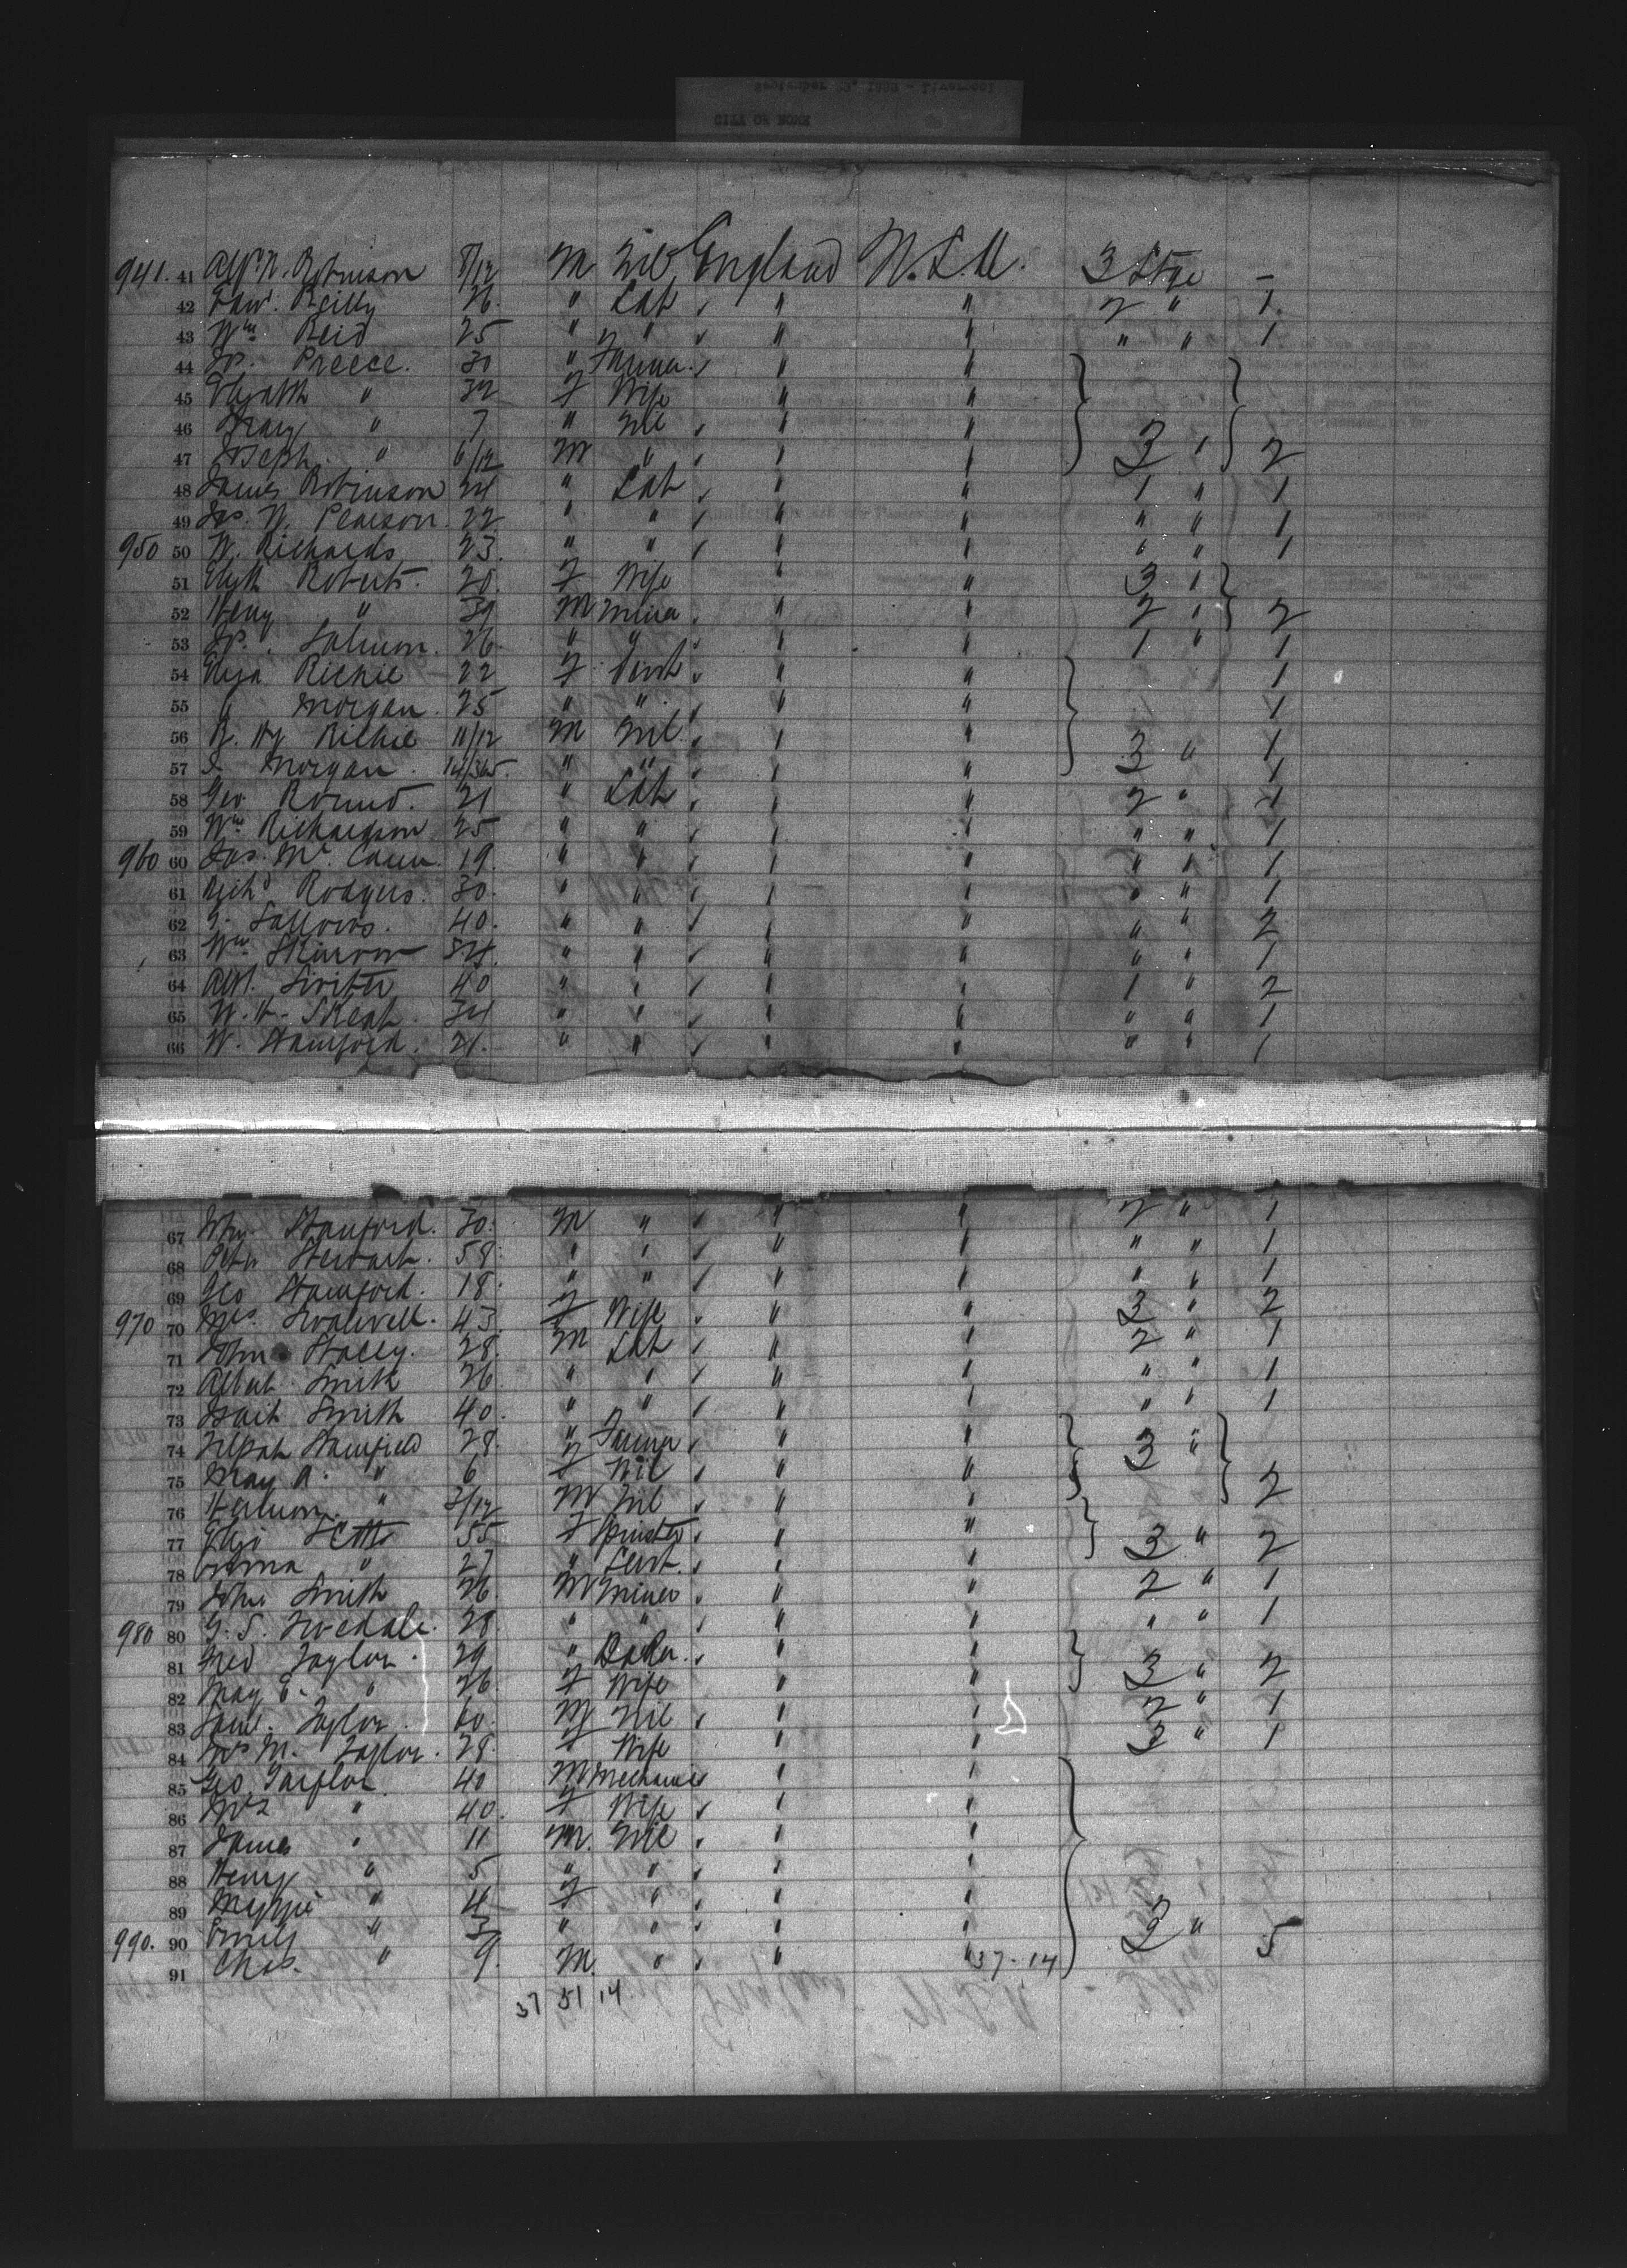 September 23, 1889 - Liverpool
CITY OF ROME
941. 41 Alf. N. Robinson 8/12 M Nil England U.S.A. 3 Stge -
42 Edw. Reilly 26 " Lab " " 2 " 1
43 Wm Reid 25 " " " " " " 1
44 Jos. Preece. 30 " Farmer " "
45 Elizabth " 32 F Wife " "
46 Mary " 7 " Nil " "
47 Joseph " 6/12 M " " " 3 " 2
48 James Robinson 24 " Lab " " 1 " 1
49 Jas. W. Pearson 22 " " " " " " 1
950 50 W. Richards 23. " " " " " " 1
51 Elizth Roberts. 28. F Wife " " 3 "
52 Henry " 39 M Miner " " 2 " 2
53 Jos. Salmon. 26. " " " " 1 " 1
54 Eliza Richie 22 F Servt " " 1
55 " Morgan. 25 " " " " 1
56 R. Hy Richie 11/12 M Nil " " 3 " 1
57 Morgan. 14/365. " " " " 1
58 Geo Round. 21 " Lab " " 2 " 1
59 Wm Richardson 25 " " " " " " 1
960 60 Jas. Mc Cann. 19. " " " " " " 1
61 Richd Rodgers. 30. " " " " " " 1
62 Sallows. 40. " " " " " " 2
63 Wm 54. " " " " " " 1
64 Alf. Siviter 40 " " " " 1 " 2
65 W. H. Skeat. 34 " " " " " " 1
66 W. Stamford. 21. " " " " " " 1
67 Stamford. 30. M " " " 2 " 1
68 Peter Stewart. 58. " " " " " " 1
69 Geo Stamford. 18. " " " " " " 1
970 70 Mrs. 43 F Wife " " 3 " 2
71 John Stacey. 28. M Lab " " 2 " 1
72 Albert Smith 26 " " " " " " 1
73 Smith 40. " " " " " " 1
74 Zilpah Stanfield 28. " Farmer " " 3 "
75 Mary A. " 6 F Nil " " 2
76 " 3/12 M Nil " "
77 Eliza Scott 55 F Spinster " " 3 " 2
78 Emma " 27 " Servt. " "
79 John Smith 26 M Miner " " 2 " 1
980 80 G. S. Tweedale. 28. " " " " " " 1
81 Fred Taylor. 29 " " " 3 " 2
82 Mary E. " 26 F Wife " "
83 Saml. Taylor. 60. M Nil " " 2 " 1
84 Mrs M. Taylor. 28. F Wife " " 3 " 1
85 Geo Taylor 40 M Mechanic " "
86 Mrs " 40. F Wife " "
87 James " 11 M. Nil " "
88 Henry " 5 " " " "
89 Maggie " 4 F " " "
990. 90 Emily " 3 " " " " 3 " 5
91 Chas. " 9. M. " " " 37-14
37 51 14